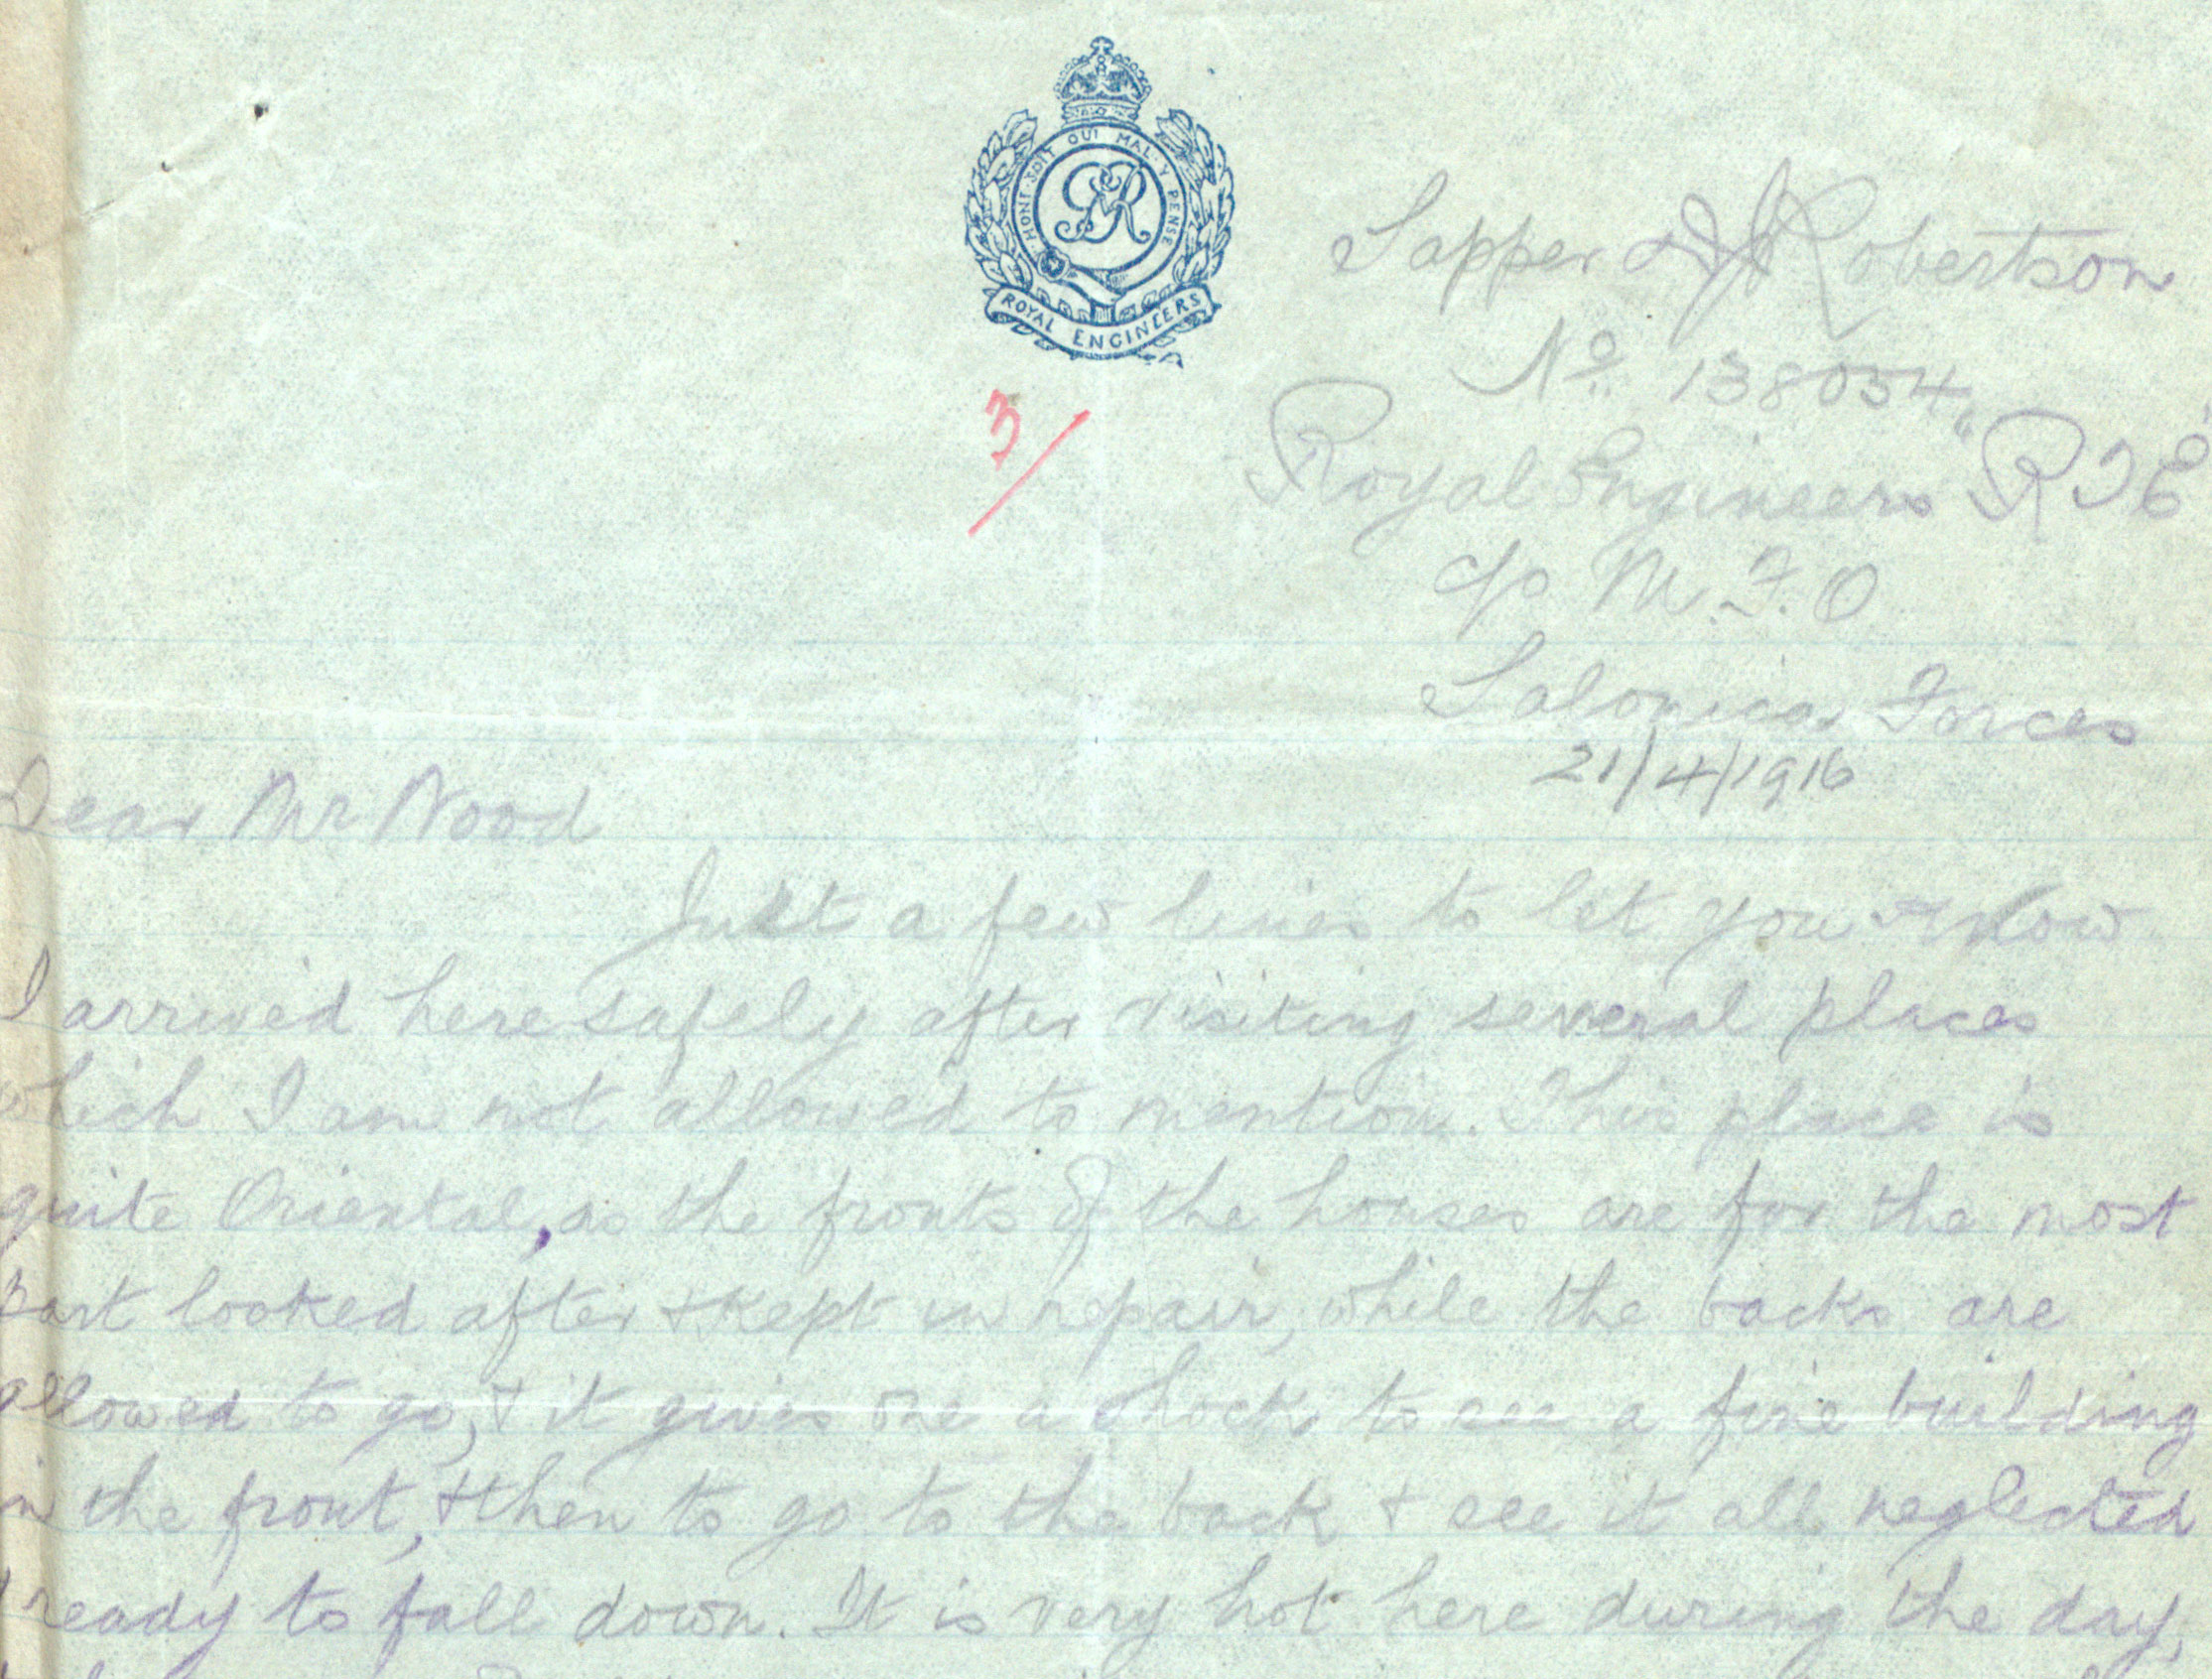 HONI SOIT QUI MAL Y PENSE
GR
ROYAL ENGINEERS
3/
Sapper Robertson
No 138054
Royal Engineers "R T E"
c/o M.F.O
Salonica Forces
21/4/1916
Dear Mr Wood
Just a few lines to let you know
I arrived here safely after visiting several places
which I am not allowed to mention. This place is
quite Oriental, as the fronts of the houses are for the most
part looked after & kept in repair, while the backs are
allowed to go, & it gives one a shock to see a fine building
in the front, & then to go to the back & see it all neglected
ready to fall down. It is very hot here during the day,